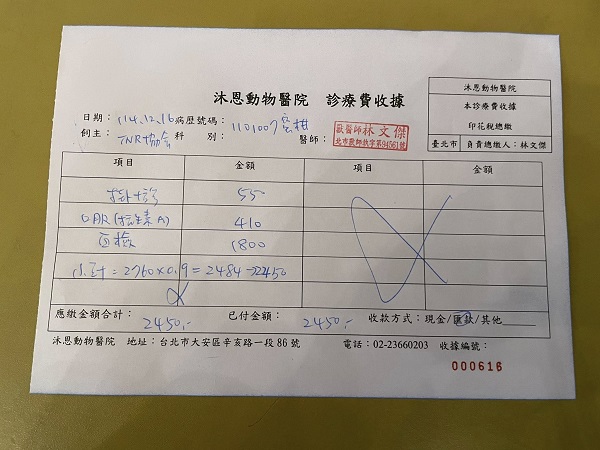 沐恩動物醫院 診療費收據
沐恩動物醫院
本診療費收據
印花稅總繳
臺北市 負責總繳人：林文傑
日期：114.12.16 病歷號碼：1101007
飼主：TNR協會 科 別： 醫師：
獸醫師林文傑
項目 金額 項目 金額
掛+診 550
410
血檢 1800
小計=2760×0.9=2484→2450
應繳金額合計：2450.- 已付金額：2450.- 收款方式：現金/匯款/其他
沐恩動物醫院 地址：台北市大安區辛亥路一段86號 電話：02-23660203 收據編號：
000616